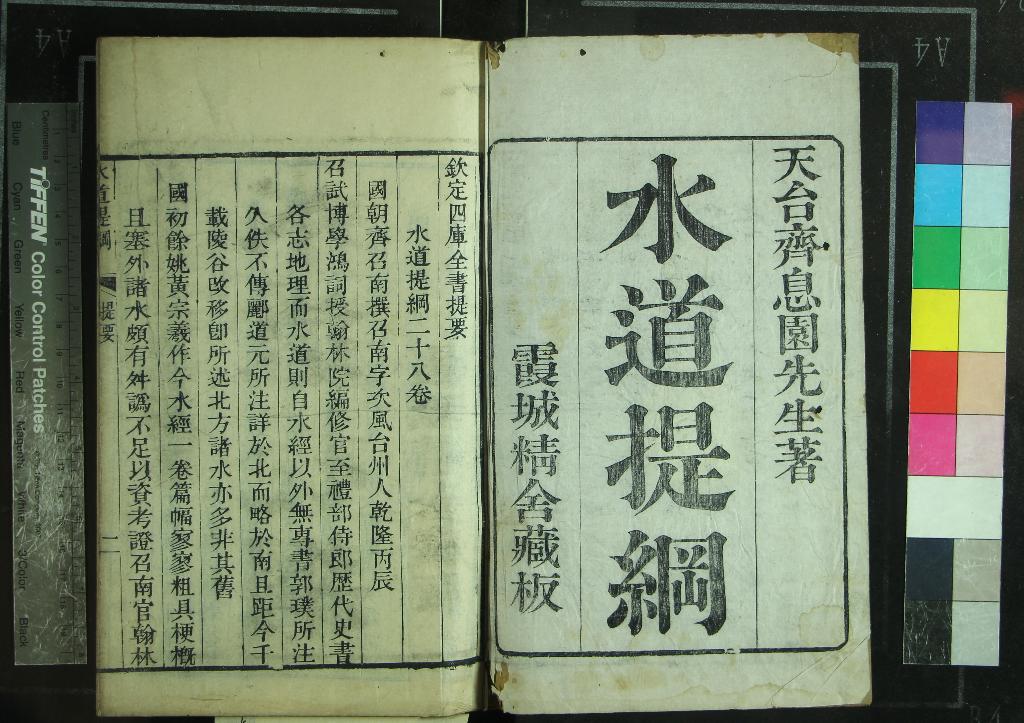 天台齊息園先生著
水道提綱
霞城精舍藏板
欽定四庫全書提要
水道提綱二十八卷
國朝齊召南撰召南字次風台州人乾隆丙辰
召試博學鴻詞授翰林院編修官至禮部侍郎歷代史書
各志地理而水道則自水經以外無專書郭璞所注
久佚不傳酈道元所注詳於北而略於南且距今千
載陵谷改移卽所述北方諸水亦多非其舊
國初餘姚黃宗羲作今水經一卷篇幅寥寥粗具梗概
且塞外諸水頗有舛譌不足以資考證召南官翰林
水道提綱 提要 一
A4
A4
TIFFEN Color Control Patches
Centimetres
Blue Cyan Green Yellow Red Magenta White 3/Color Black